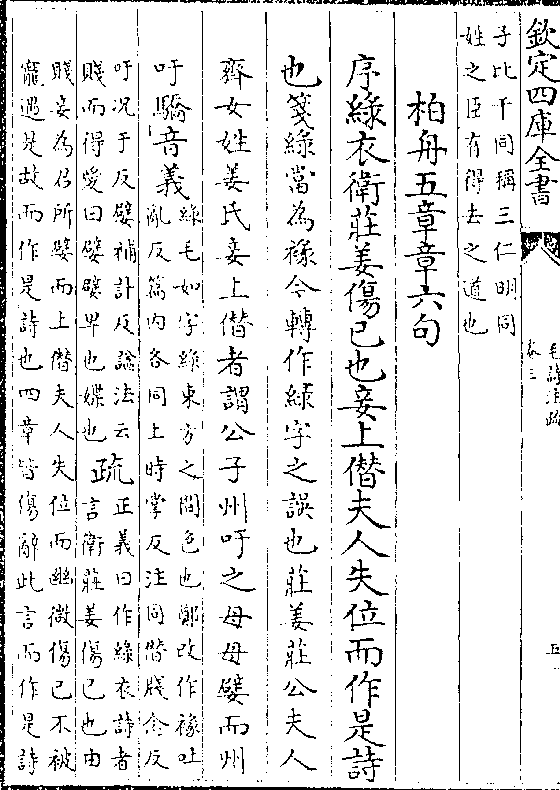 欽定四庫全書
毛詩注疏
卷三
五
子比干同稱三仁明同
姓之臣有得去之道也
柏舟五章章六句
序綠衣衛莊姜傷己也妾上僭夫人失位而作是詩
也箋綠當為褖今轉作綠字之誤也莊姜莊公夫人
齊女姓姜氏妾上僭者謂公子州吁之母母嬖而州
吁驕音義
綠毛如字綠東方之間色也鄭改作褖吐
亂反篇內各同上時掌反注同僭牋念反
吁况于反嬖補計反諡法云
賤而得愛曰嬖嬖卑也媟也
疏
正義曰作綠衣詩者
言衛莊姜傷己也由
賤妾為君所嬖而上僭夫人失位而幽微傷己不被
寵遇是故而作是詩也四章皆傷辭此言而作是詩